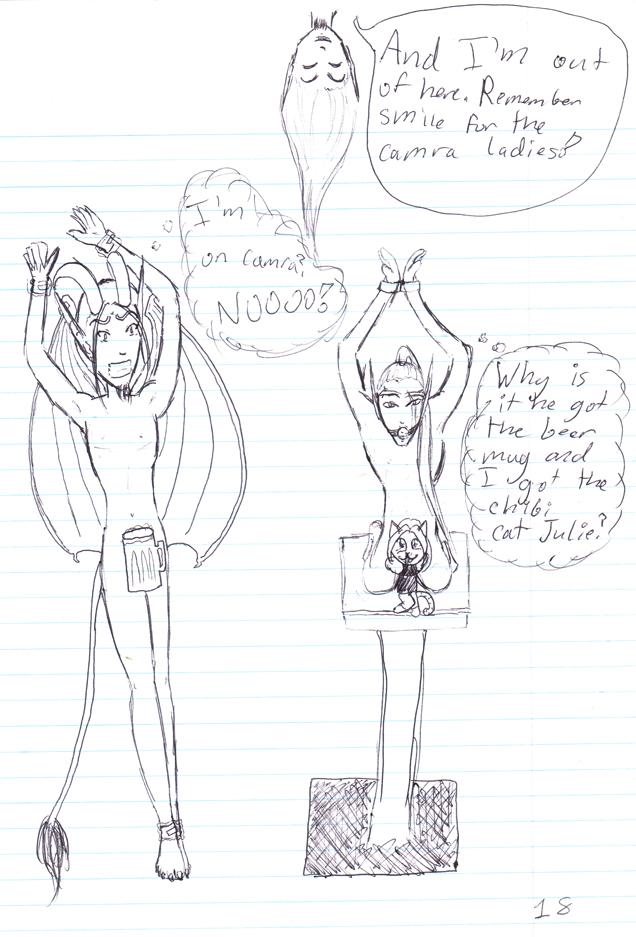 And I'm out
of here. Remember
smile for the
camra ladies!
I'm
on camra?
NOOOO!
Why is
it he got
the beer
mug and
I got the
chibi
cat Julie?
18